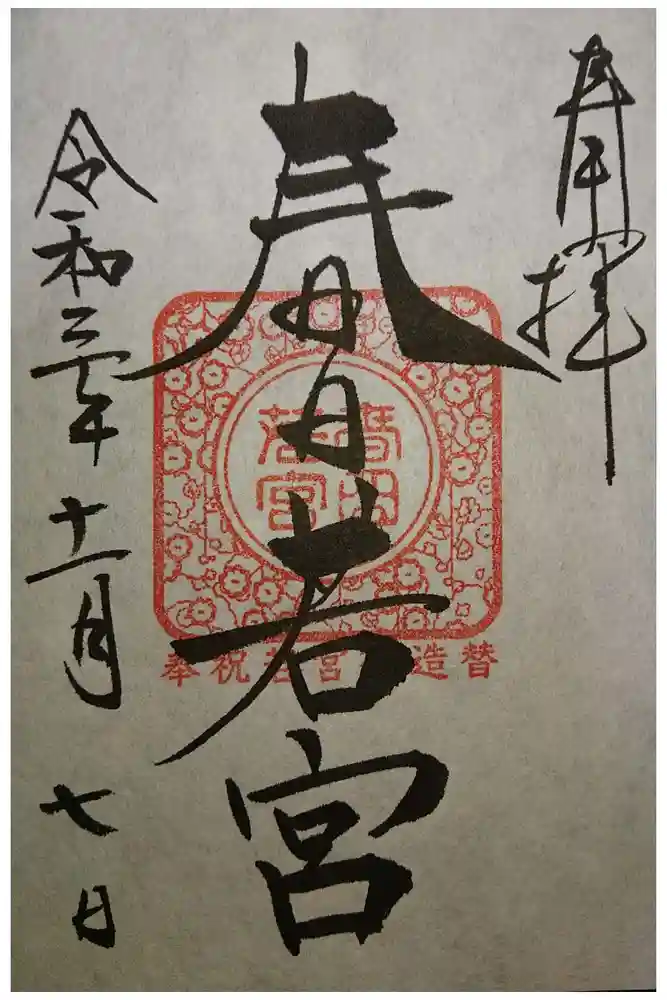 奉拝
春日若宮
令和三年十一月七日
春日
若宮
奉祝若宮 造替